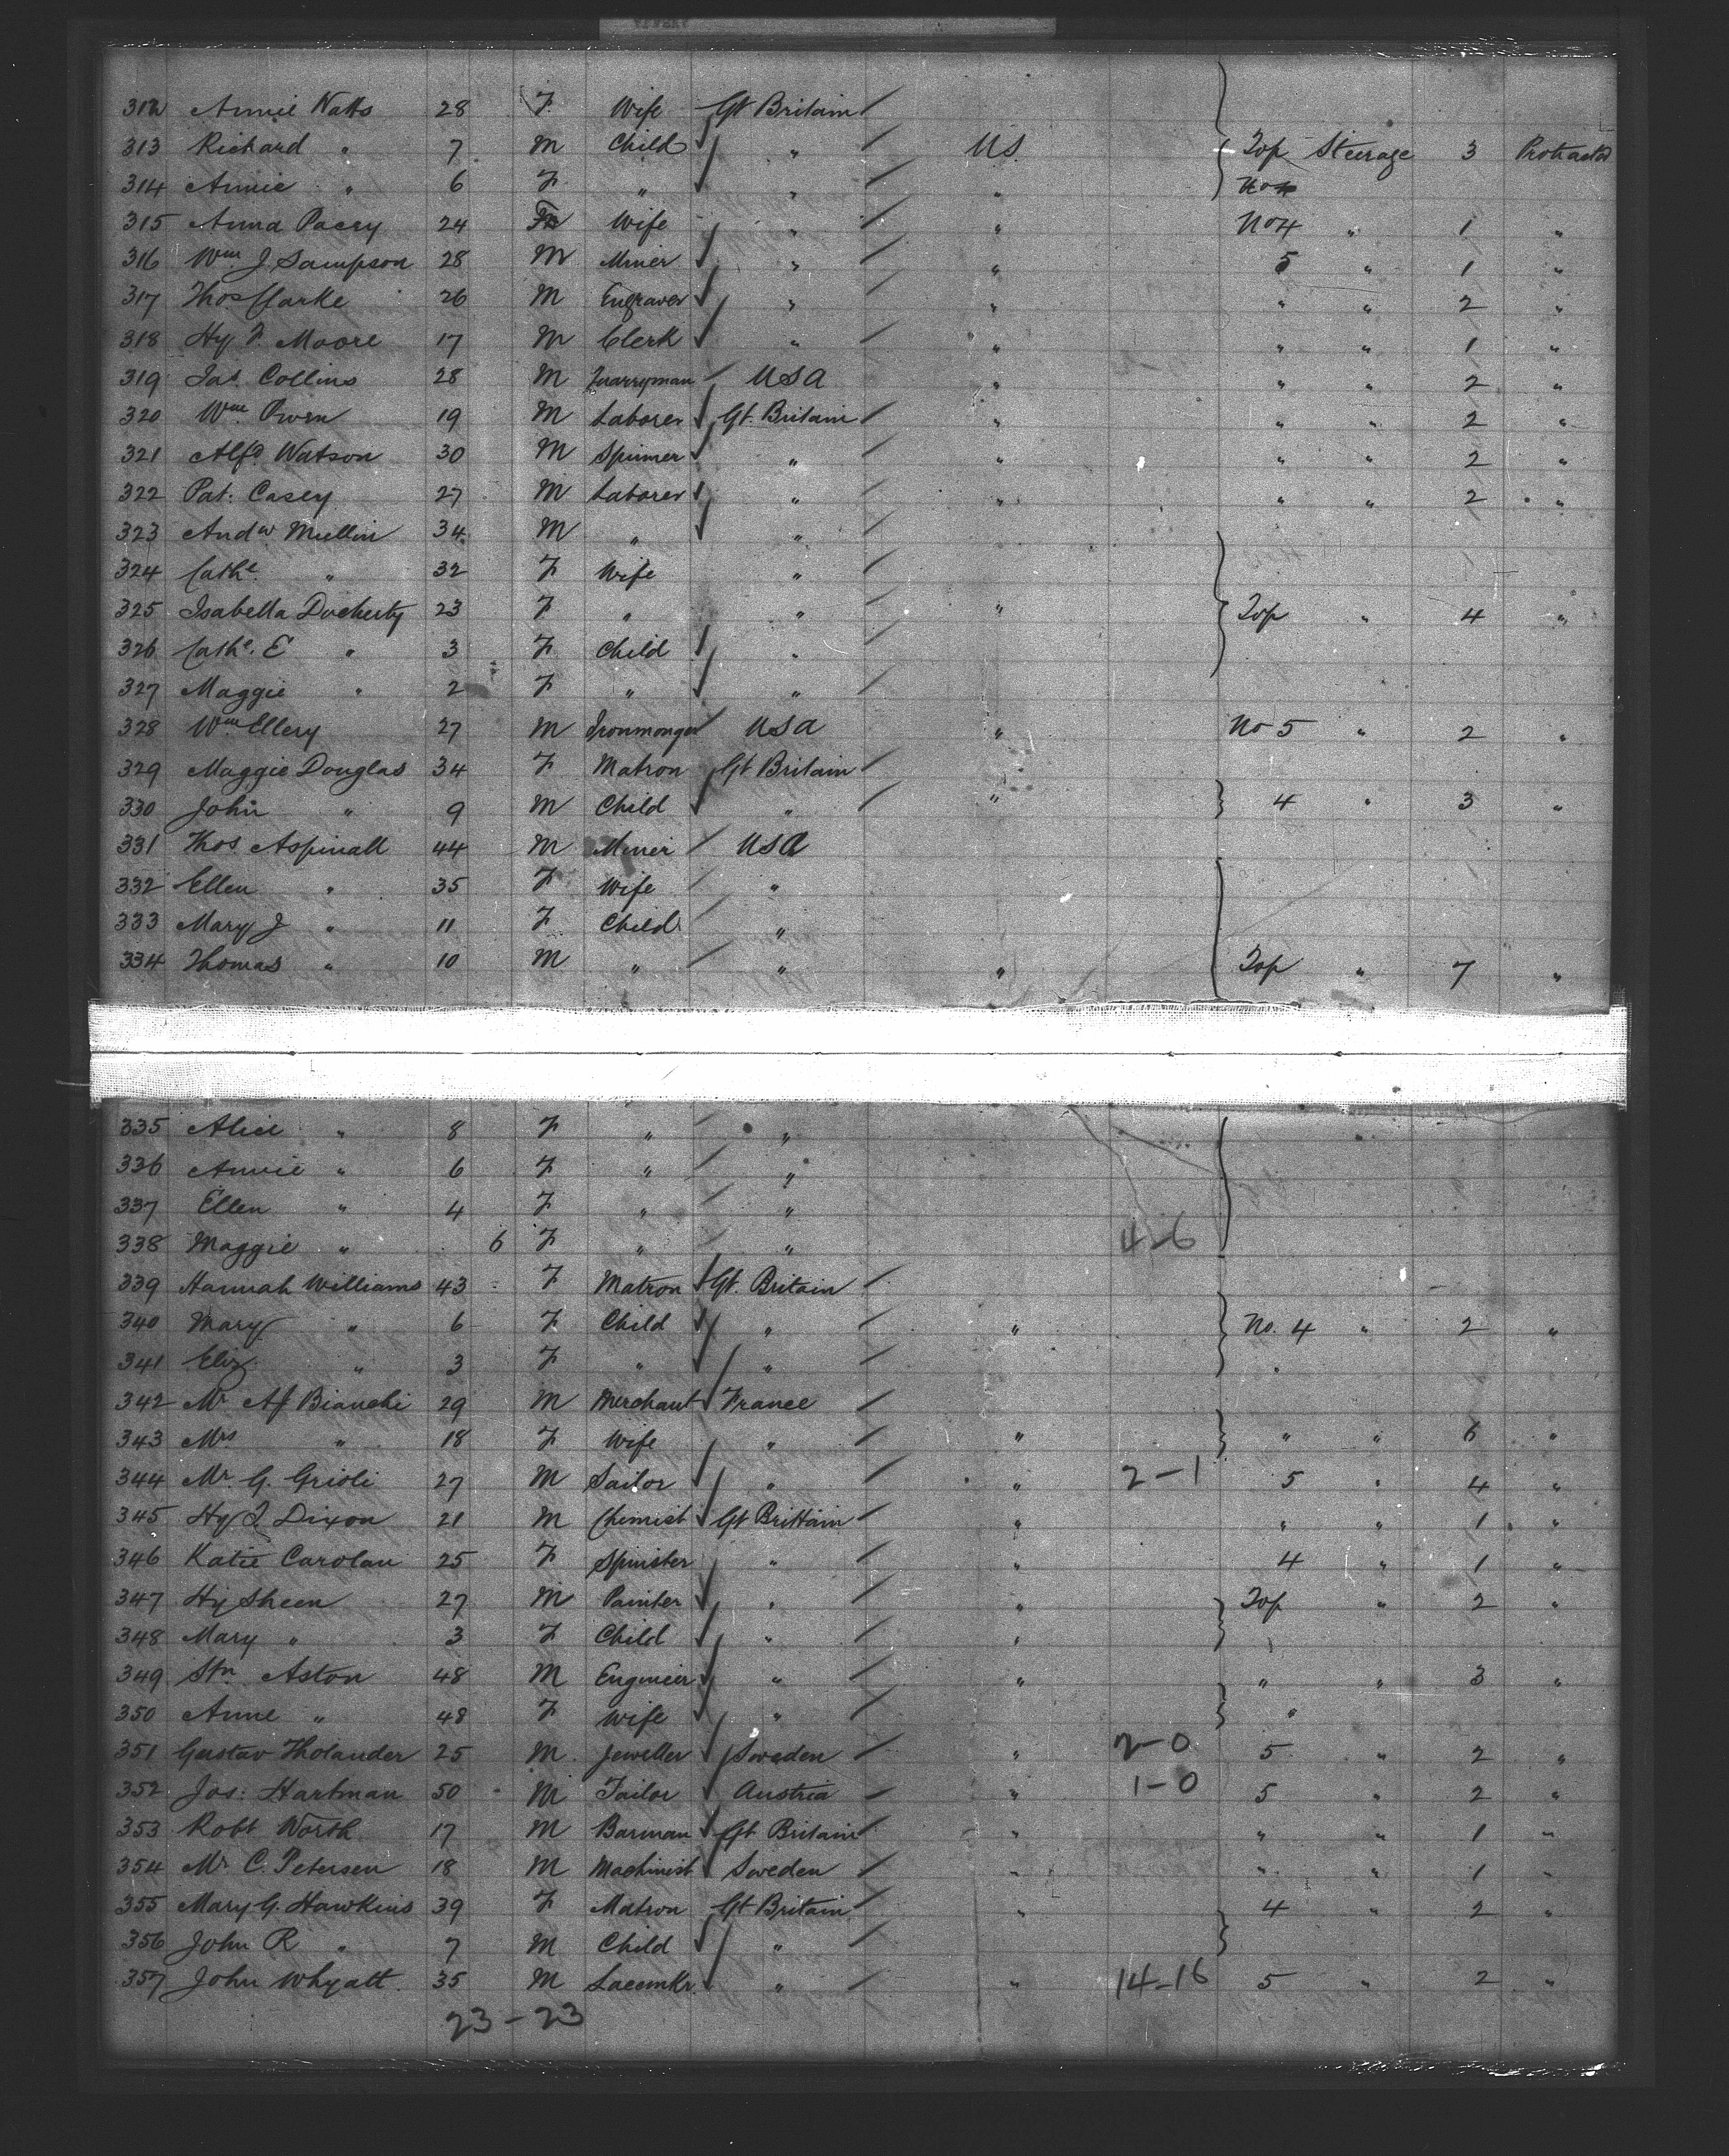 312 Annie Watts 28 F Wife Gt Britain
313 Richard " 7 M Child " US Top Steerage 3 Protracted
314 Annie " 6 F " " " No
315 Anna Pacey 24 F Wife " " No 4 " 1 "
316 Wm J Sampson 28 M Miner " " 5 " 1 "
317 Thos Clarke 26 M Engraver " " " " 2 "
318 Hy F. Moore 17 M Clerk " " " " 1 "
319 Jas Collins 28 M Quarryman USA " " " 2 "
320 Wm Owen 19 M Laborer Gt. Britain " " " 2 "
321 Alfd Watson 30 M Spinner " " " " 2 "
322 Pat. Casey 27 M Laborer " " " " 2 "
323 Andw Mullin 34 M " "
324 Cathe " 32 F Wife "
325 Isabella Docherty 23 F " " " Top " 4 "
326 Cathe. E " 3 F Child "
327 Maggie " 2 F " "
328 Wm Ellery 27 M Ironmonger USA " No 5 " 2 "
329 Maggie Douglas 34 F Matron Gt Britain
330 John " 9 M Child " " 4 " 3 "
331 Thos Aspinall 44 M Miner USA
332 Ellen " 35 F Wife "
333 Mary J " 11 F Child "
334 Thomas " 10 M " " " Top " 7 "
335 Alice " 8 F " "
336 Annie " 6 F " "
337 Ellen " 4 F " "
338 Maggie " 6 F " " 4-6
339 Hannah Williams 43 F Matron Gt. Britain
340 Mary " 6 F Child " " No. 4 " 2 "
341 Eliz. " 3 F " "
342 Mr Af Bianchi 29 M Merchant France
343 Mrs " 18 F Wife " " " " 6 "
344 Mr G. Grioli 27 M Sailor " " 2-1 5 " 4 "
345 Hy J. Dixon 21 M Chemist Gt Brittain " " " 1 "
346 Katie Carolan 25 F Spinster " " 4 " 1 "
347 Hy Sheen 27 M Painter " " Top " 2 "
348 Mary " 3 F Child " "
349 Stn Aston 48 M Engineer " " " " 3 "
350 Anne " 48 F Wife " "
351 Gustav Tholander 25 M Jeweller Sweden " 2-0 5 " 2 "
352 Jos: Hartman 50 M Tailor Austria " 1-0 5 " 2 "
353 Robt Worth 17 M Barman Gt Britain " " " 1 "
354 Mr C. Petersen 18 M Machinist Sweden " " " 1 "
355 Mary G. Hawkins 39 F Matron Gt Britain " 4 " 2 "
356 John R " 7 M Child "
357 John Whyatt. 35 M Lacemkr. " " 14-16 5 " 2 "
23-23